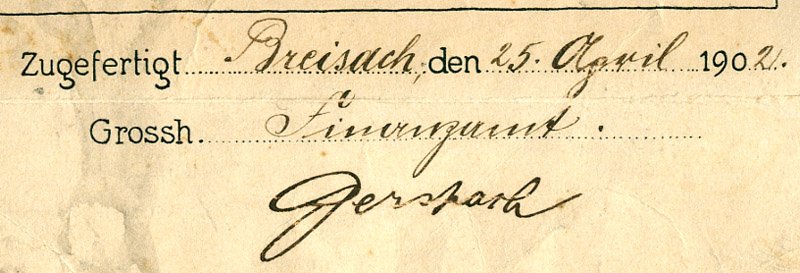 Zugefertigt Breisach, den 25. April 1902.
Grossh. Finanzamt.
Gersbach